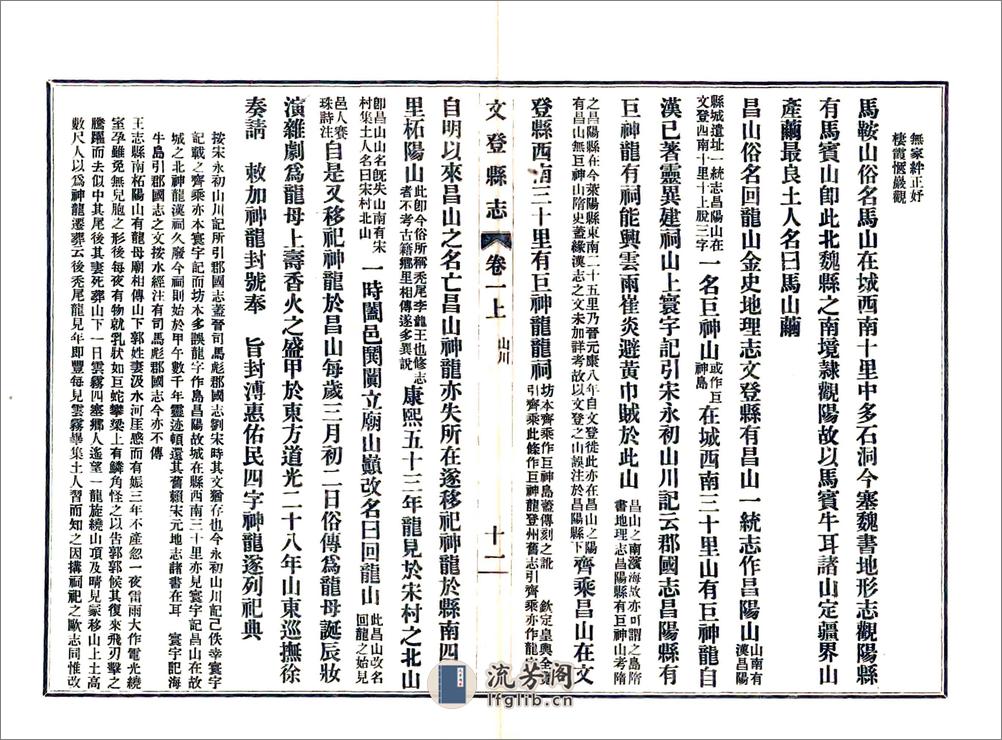 無家絆正好
棲霞愜巖觀
馬鞍山俗名馬山在城西南十里中多石洞今塞魏書地形志觀陽縣
有馬賓山卽此北魏縣之南境隸觀陽故以馬賓牛耳諸山定疆界山
產繭最良土人名曰馬山繭
昌山俗名回龍山金史地理志文登縣有昌山一統志作昌陽山山南有漢昌陽
縣城遺址一統志昌陽山在文登西南十里十上脫三字一名巨神山或作巨神島在城西南三十里山有巨神龍自
漢已著靈異建祠山上寰宇記引宋永初山川記云郡國志昌陽縣有
巨神龍有祠能興雲雨崔炎避黃巾賊於此山昌山之南濱海故亦可謂之島隋書地理志昌陽縣有巨神山考隋
之昌陽縣在今萊陽縣東南二十五里乃晉元康八年自文登徙此亦在昌山之陽有昌山無巨神山隋史蓋緣漢志之文未加詳考故以文登之山誤注於昌陽縣下齊乘昌山在文
登縣西南三十里有巨神龍龍祠坊本齊乘作巨神島蓋傳刻之訛 欽定皇輿全引齊乘此條作巨神龍登州舊志引齊乘亦作龍
文登縣志 卷一上 山川 十一
自明以來昌山之名亡昌山神龍亦失所在遂移祀神龍於縣南四
里柘陽山此卽今俗所稱禿尾李龍王也修志者不考古籍鄉里相傳遂多異說康熙五十三年龍見於宋村之北山
卽昌山昌山名旣失山南有宋村集土人名曰宋村北山一時闔邑闐闐立廟山巓改名曰回龍山此昌山改名回龍之始見
邑人賽珠詩注自是又移祀神龍於昌山每歲三月初二日俗傳爲龍母誕辰妝
演雜劇爲龍母上壽香火之盛甲於東方道光二十八年山東巡撫徐
奏請 敕加神龍封號奉 旨封溥惠佑民四字神龍遂列祀典
按宋永初山川記所引郡國志蓋晉司馬彪郡國志劉宋時其文猶存也今永初山川記已佚幸寰宇
記載之齊乘亦本寰宇記而坊本多誤龍字作島昌陽故城在縣西南三十里亦見寰宇記昌山在故
城之北神龍漢祠久廢今祠則始於甲午數千年靈迹頓還其舊賴宋元地志諸書在耳 寰宇記海
牛島引郡國志之文按水經注有司馬彪郡國志今亦不傳
王志縣南柘陽山有龍母廟相傳山下郭姓妻汲水河崖感而有娠三年不產忽一夜雷雨大作電光繞
室孕雖免無兒胞之形後每夜有物就乳狀如巨蛇攀梁上有鱗角怪之以告郭郭候其復來飛刃擊之
騰躍而去似中其尾後其妻死葬山下一日雲霧四塞鄉人遙望一龍旋繞山項及晴見冢移山上土高
數尺人以爲神龍遷葬云後禿尾龍見年卽豐每見雲霧畢集土人習而知之因搆祠祀之歐志同惟改
流芳阁
lfglib.cn